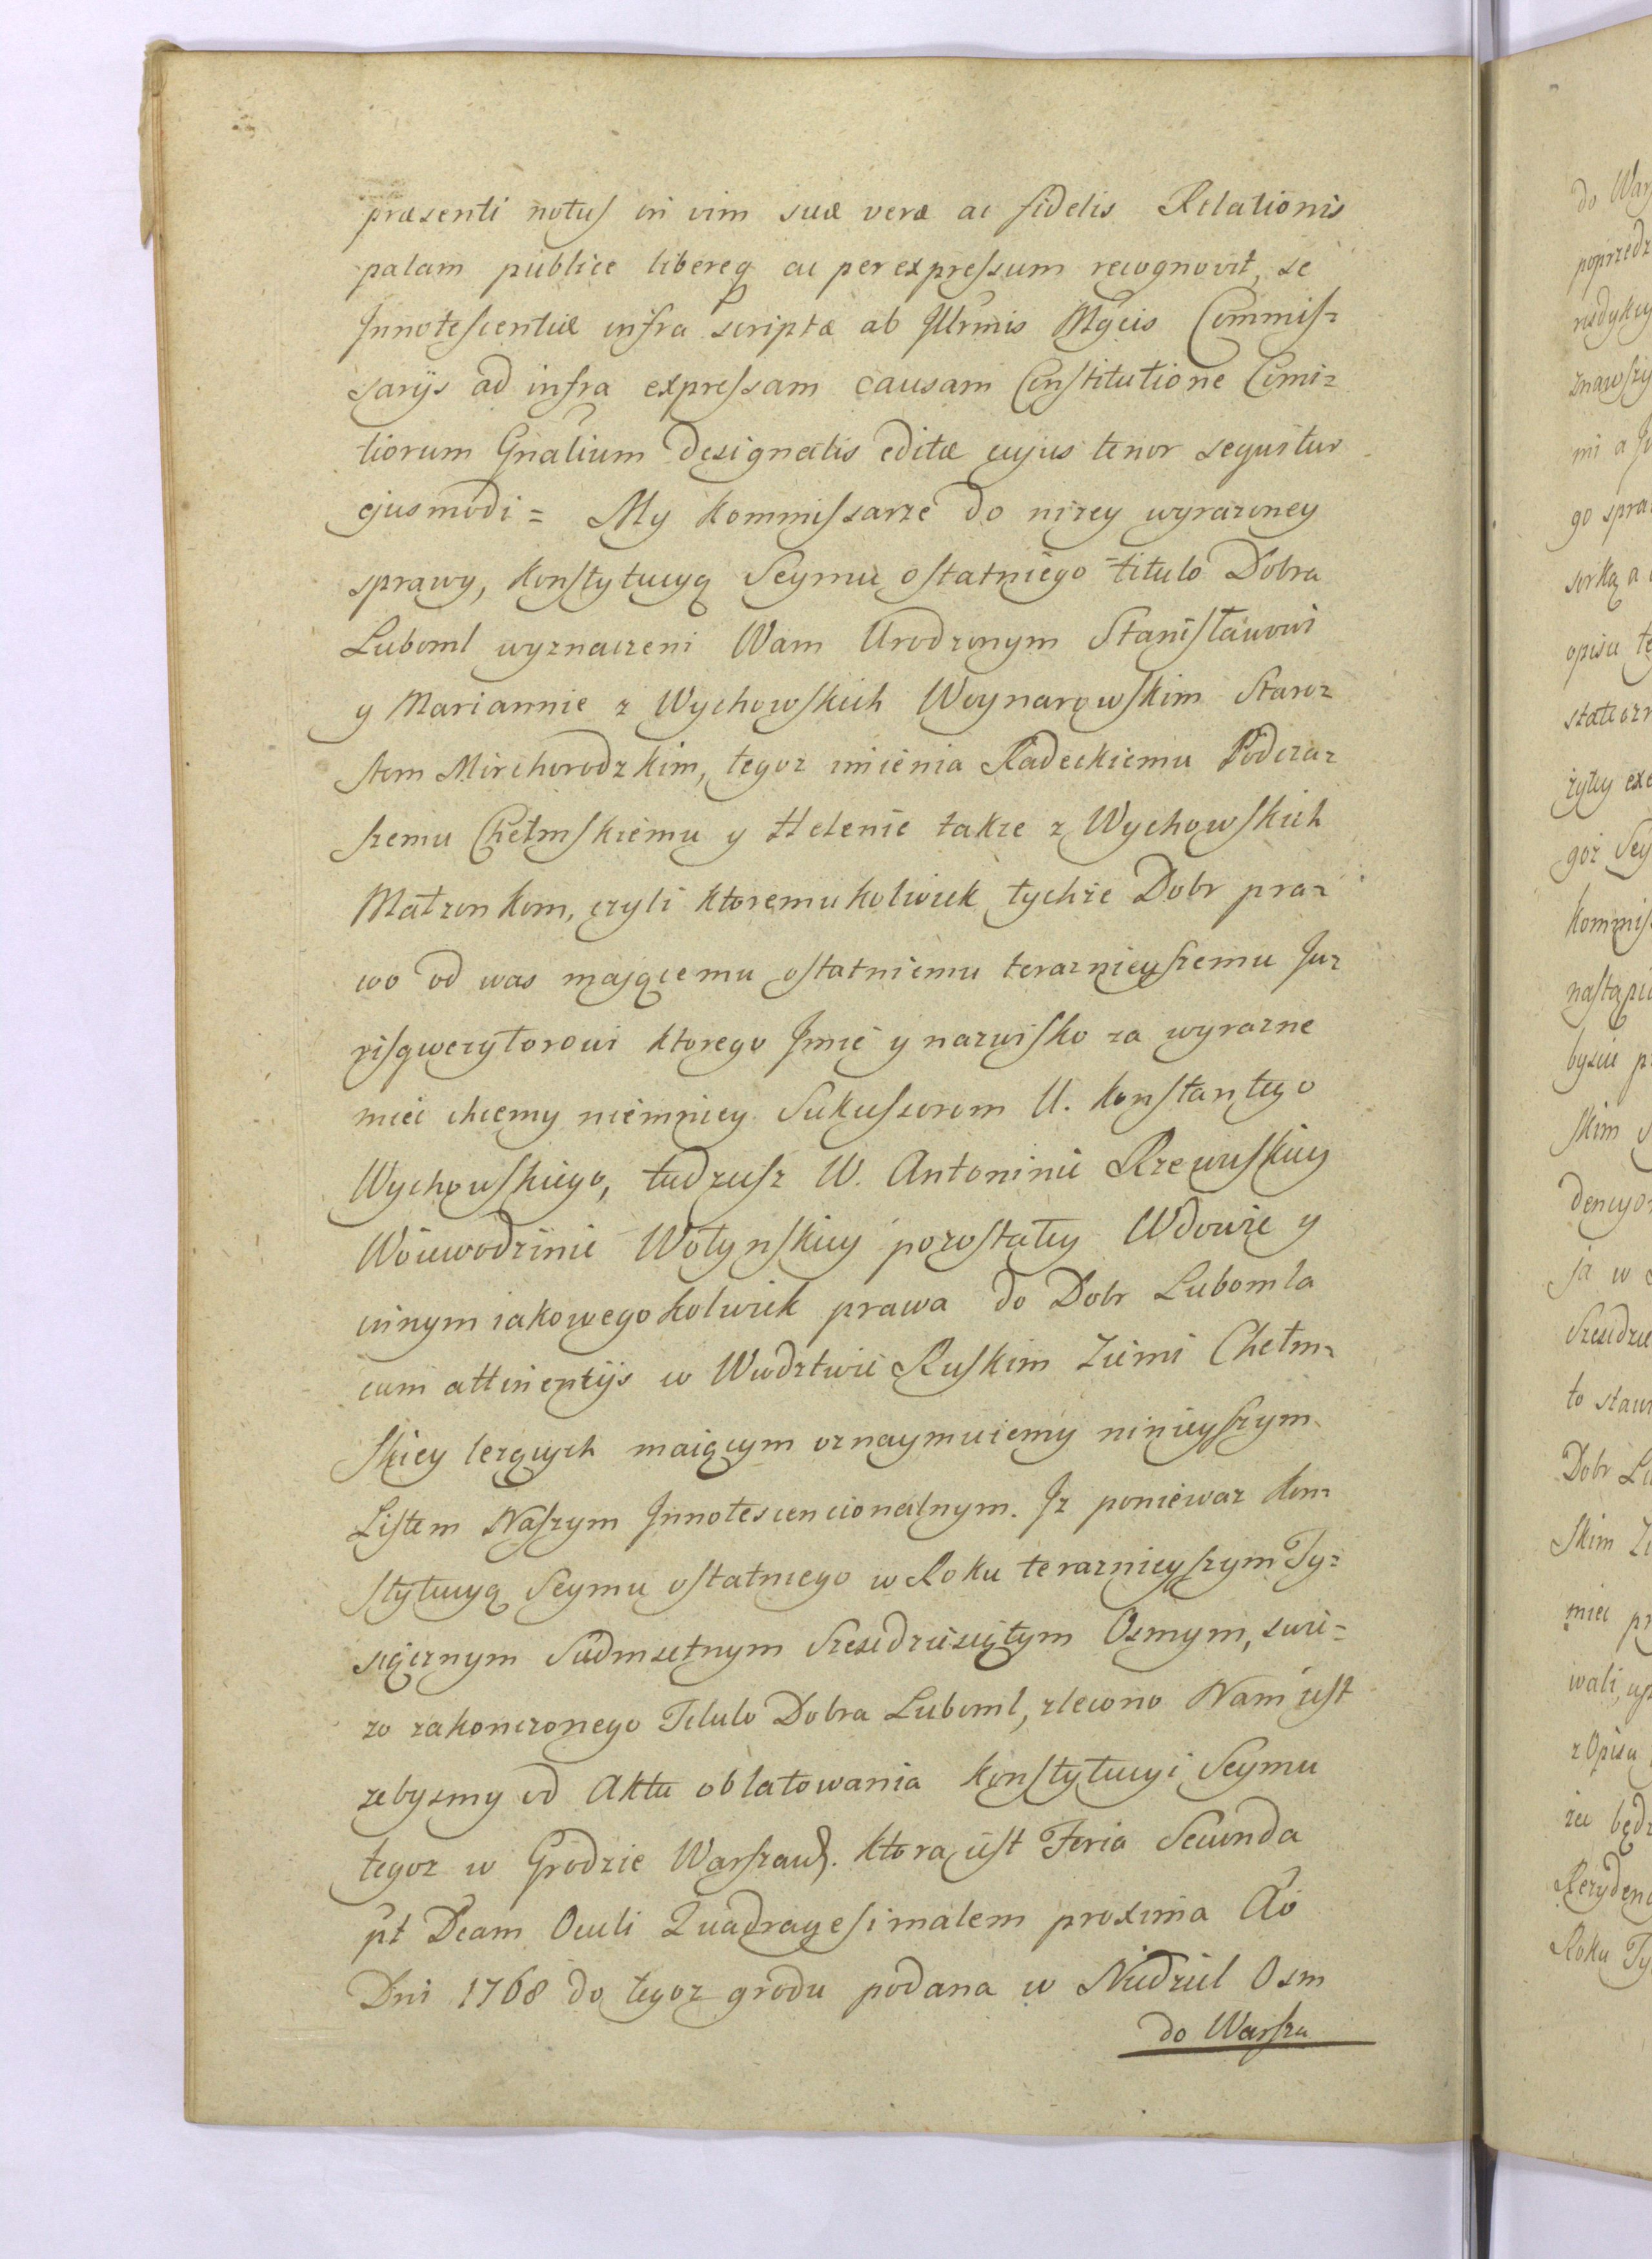 præsenti notus in vim suæ veræ ac fidelis Relationis
palam publice libereq ac per expressum recognovit, se
Innotescentiæ infra scriptæ ab Illrmis Mgcis Commis=
sarijs ad infra expressam causam Constitutione Comi=
tiorum Gnalium designatis editæ cujus tenor sequitur
ejusmodi = My Kommissarze do nizey wyrazoney
sprawy, Konstytucyą Seymu ostatniego titulo Dobra
Luboml wyznaczeni Wam Urodzonym Stanisławowi
y Mariannie z Wychowskich Woynarowskim Staro=
stom Mirchorodzkim, tegoz imienia Radeckiemu Podcza=
szemu Chełmskiemu y Helenie takze z Wychowskich
Małzonkom, czyli ktoremukolwiek tychze Dobr pra=
wo od was mającemu ostatniemu teraznieyszemu Ju=
risqwezytorowi ktorego Imie y nazwisko za wyrazne
miec chcemy niemniey Sukcessorom U. Konstantego
Wychowskiego, tudziesz W. Antoninie Rzewuskiey
Woiewodzinie Wołynskiey pozostałey Wdowie y
innym iakowegokolwiek prawa do Dobr Lubomla
cum attinentijs w Wwdztwie Ruskim Ziemi Chełm=
skiey lezących maiącym oznaymuiemy ninieyszym
Listem Naszym Innotescencionalnym. Iz poniewaz Kon=
stytucyą Seymu ostatniego w Roku teraznieyszym Ty=
siącznym Siedmsetnym Szescdziesiątym Osmym, swie=
zo zakonczonego Titulo Dobra Luboml, zlecono Nam iest
zebysmy od Aktu oblatowania Konstytucyi Seymu
tegoz w Grodzie Warszaws. ktora iest Feria Secunda
pt Dcam Oculi Quadragesimalem proxima Ao
Dni 1768 do tegoz grodu podana w Niedziel Osm
do Warsza
do War
poprzedz
risdykcy
znawszy
mi a
go spra
opisu te
zytey exe
goz Sey
Kommis
nastąpi
skim
dencyo
ja w
Szescdzie
to staw
Dobr Lu
skim Zi
miec pr
wali
z Opisu
będz
Rezydenc
Roku Ty